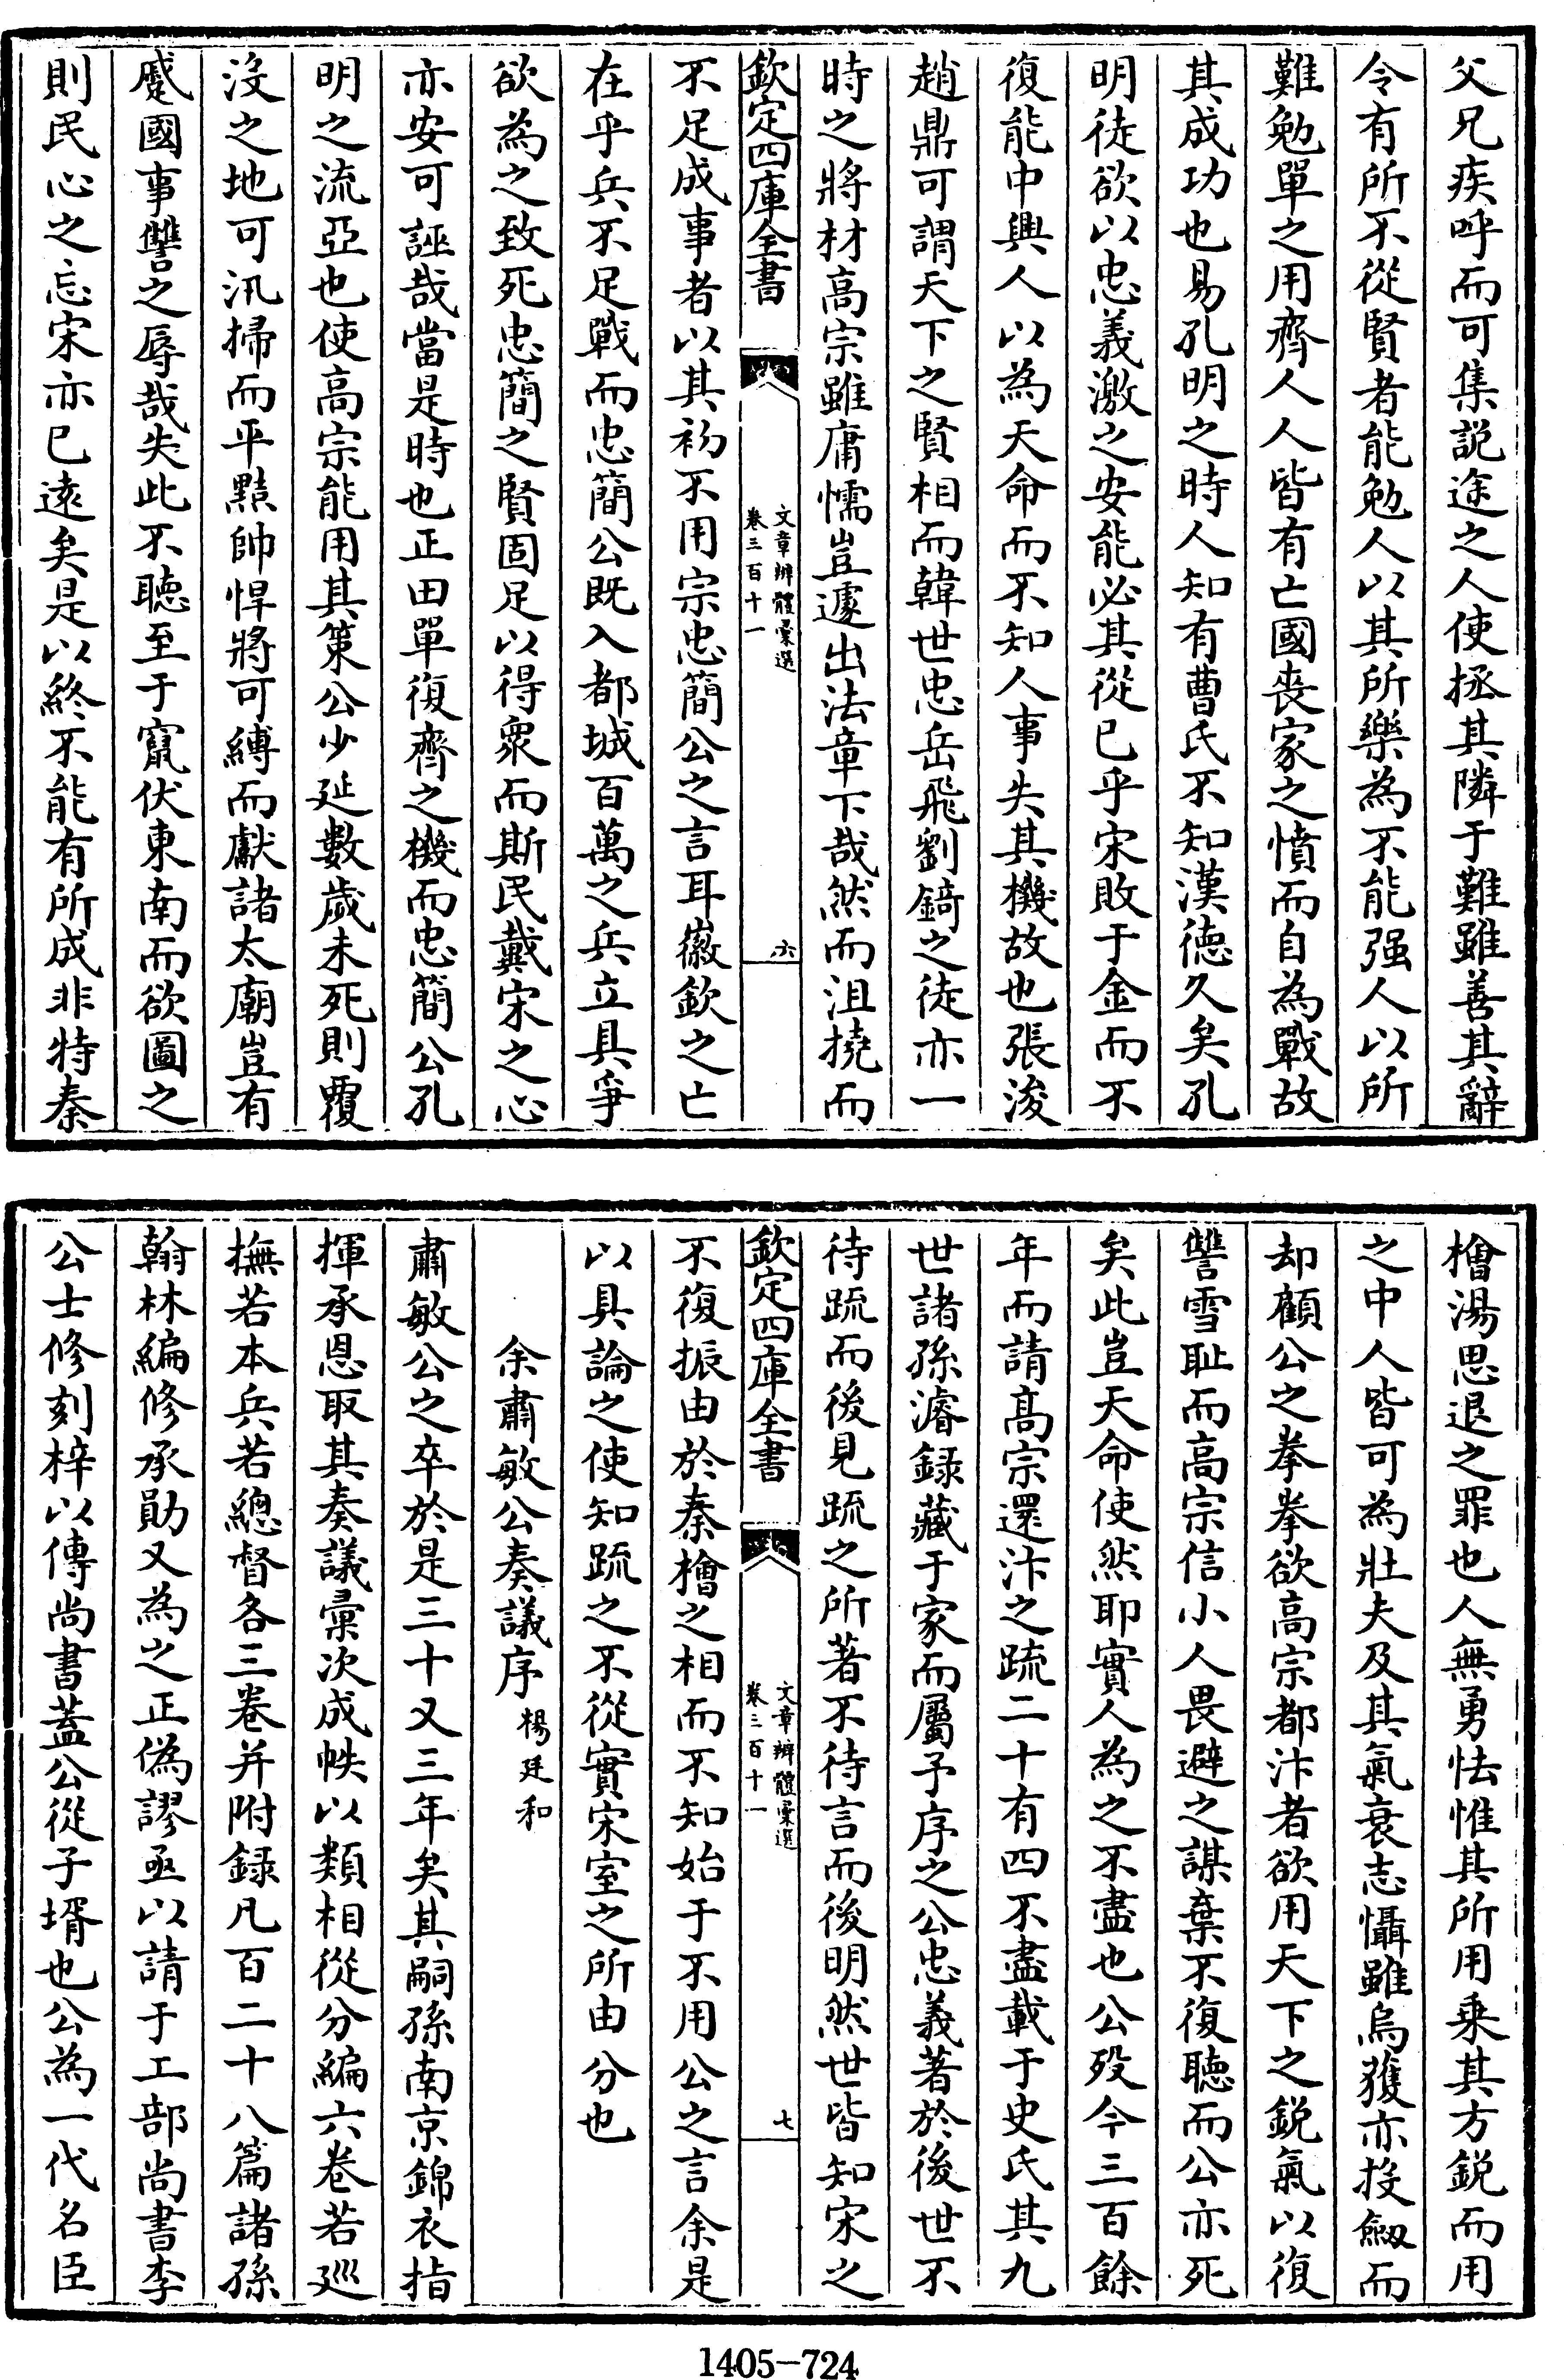 父兄疾呼而可集説途之人使拯其隣于難雖善其辭
令有所不從賢者能勉人以其所樂為不能强人以所
難勉單之用齊人人皆有亡國喪家之憤而自為戰故
其成功也易孔明之時人知有曹氏不知漢徳久矣孔
明徒欲以忠義激之安能必其從已乎宋敗于金而不
復能中興人以為天命而不知人事失其機故也張浚
趙鼎可謂天下之賢相而韓世忠岳飛劉錡之徒亦一
時之將材高宗雖庸懦豈遽出法章下哉然而沮撓而
欽定四庫全書
文章辨體彙選
卷三百十一
六
不足成事者以其初不用宗忠簡公之言耳徽欽之亡
在乎兵不足戰而忠簡公既入都城百萬之兵立具爭
欲為之致死忠簡之賢固足以得衆而斯民戴宋之心
亦安可誣哉當是時也正田單復齊之機而忠簡公孔
明之流亞也使高宗能用其策公少延數歲未死則覆
沒之地可汛掃而平黠帥悍將可縛而獻諸太廟豈有
蹙國事讐之辱哉失此不聴至于竄伏東南而欲圖之
則民心之忘宋亦已遠矣是以終不能有所成非特秦
檜湯思退之罪也人無勇怯惟其所用乗其方鋭而用
之中人皆可為壯夫及其氣衰志懾雖烏獲亦投劔而
却顧公之拳拳欲高宗都汴者欲用天下之鋭氣以復
讐雪耻而高宗信小人畏避之謀棄不復聴而公亦死
矣此豈天命使然耶實人為之不盡也公殁今三百餘
年而請高宗還汴之疏二十有四不盡載于史氏其九
世諸孫濬録藏于家而屬予序之公忠義著於後世不
待疏而後見疏之所著不待言而後明然世皆知宋之
欽定四庫全書
文章辨體彙選
卷三百十一
七
不復振由於秦檜之相而不知始于不用公之言余是
以具論之使知疏之不從實宋室之所由分也
余肅敏公奏議序 楊廷和
肅敏公之卒於是三十又三年矣其嗣孫南京錦衣指
揮承恩取其奏議彙次成帙以類相從分編六卷若巡
撫若本兵若總督各三卷并附録凡百二十八篇諸孫
翰林編修承勛又為之正偽謬亟以請于工部尚書李
公士修刻梓以傳尚書蓋公從子壻也公為一代名臣
1405-724